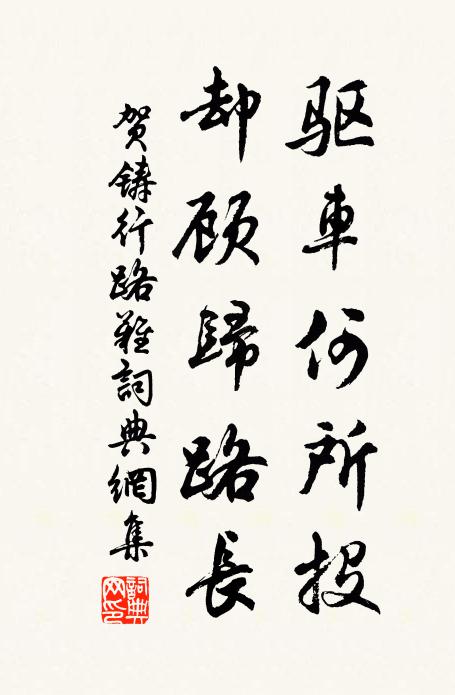 驱車何所投
却顾歸路長
贺鑄行路難詞典網集
詞典网印